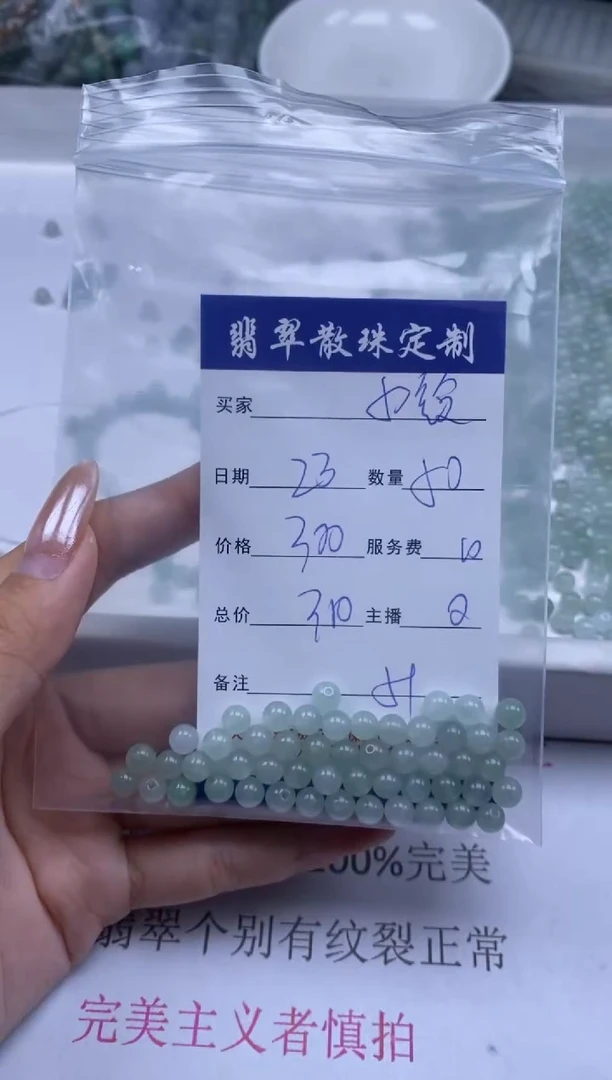 翡翠散珠定制
买家
日期 23 数量 50
价格 300 服务费 10
总价 310 主播
备注
100%完美
翡翠个别有纹裂正常
完美主义者慎拍